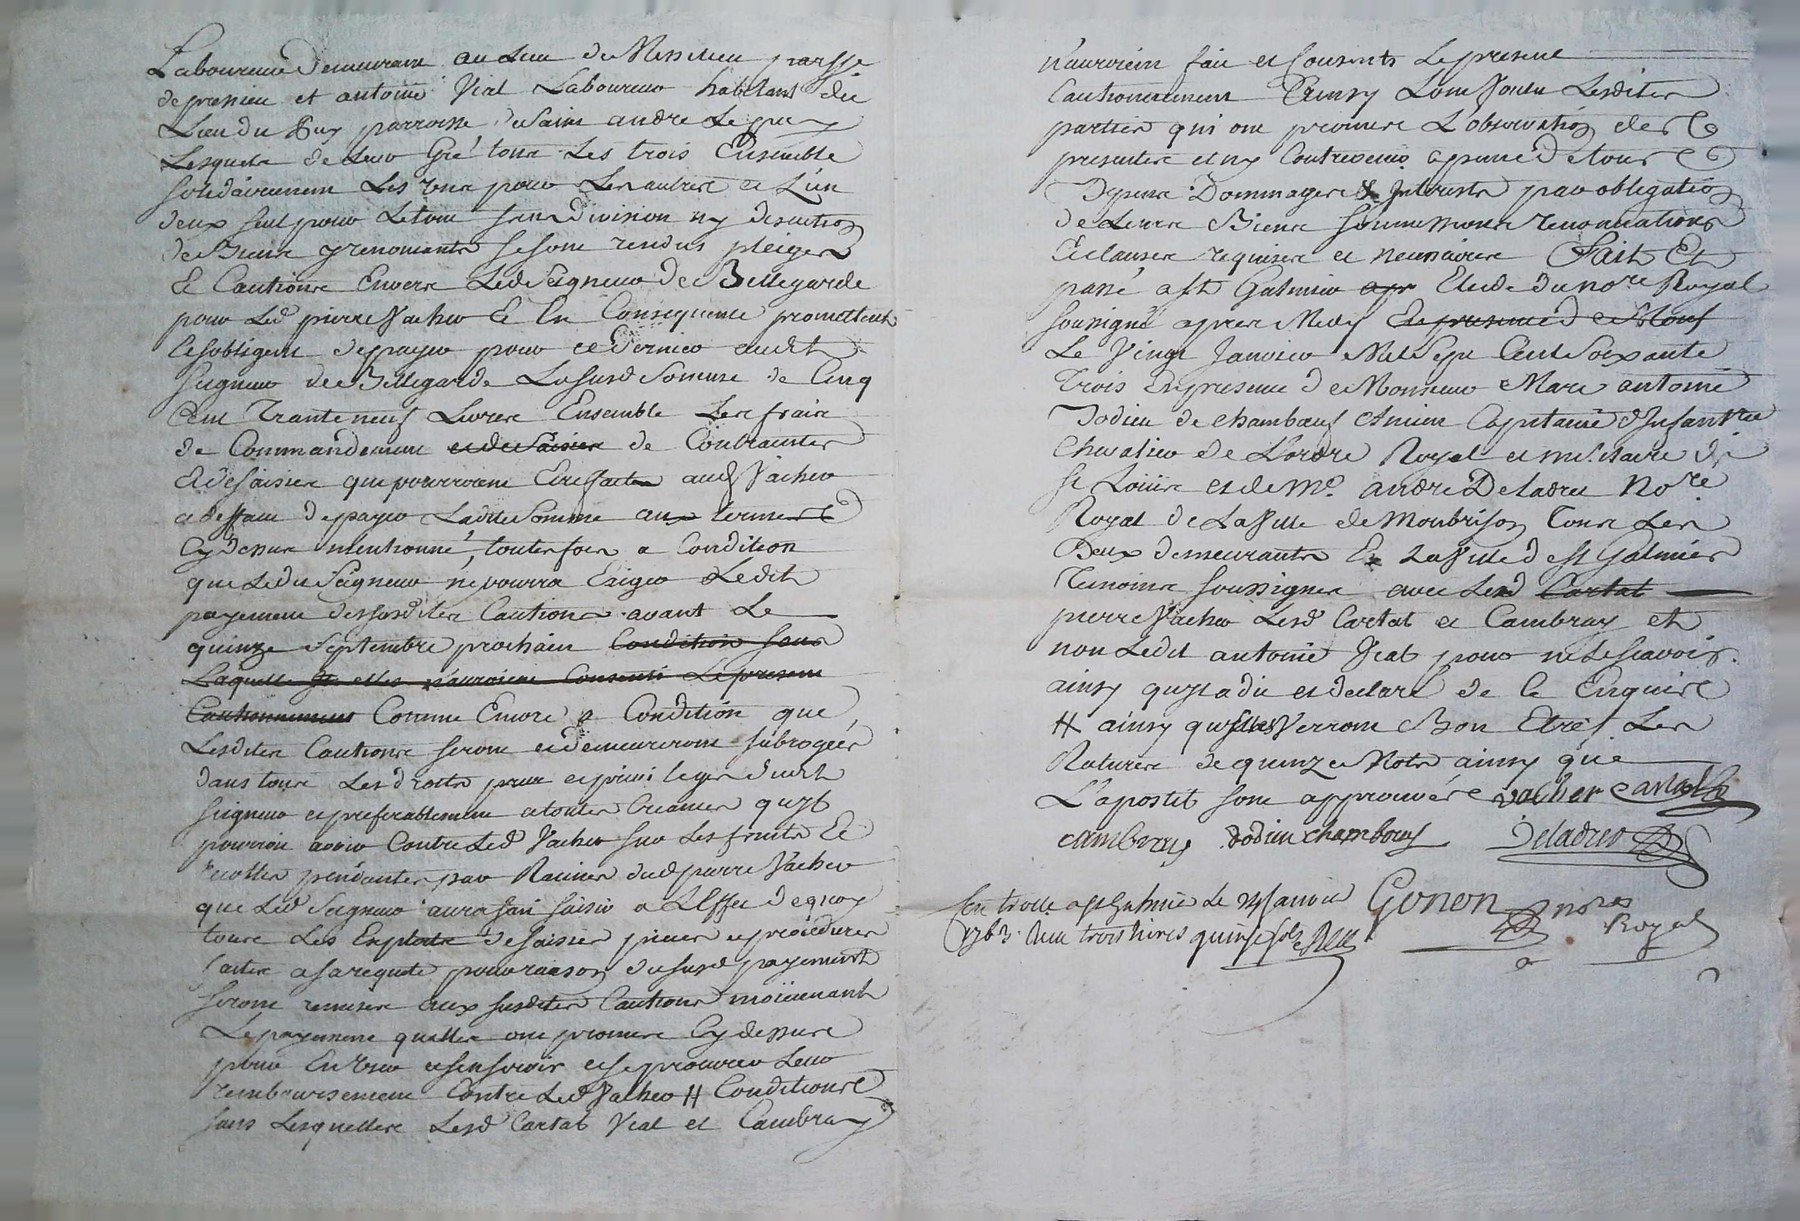 Laboureur demeurant au Lieu de Messilieu parsse
de pressieu et antoine Vial Laboureur habitant du
Lieu du Puy parroisse de Saint andre Le puy
Lesquels de Leur Gré tous Les trois Ensemble
solidairement Les uns pour Les autres et L'un
deux seul pour Le tout sans division ny discution
de Biens y renonçants se sont rendus pleiges
Et Cautions Envers Led Seigneur De Bellegarde
pour Led pierre Vacher Et En Consequence promettent
Et sobligent de payer pour ce dernier audit
Seigneur de Bellegarde La susd Somme de Cinq
Cent Trante neuf Livres Ensemble Les frais
de Commandement et de Saisies de Contraintes
Et de saisies que pourroient Etre faites aud Vacher
a deffaut de payer Ladite Somme aux termes
Cy dessus mentionné, toutes fois a Condition
que Ledit Seigneur ne pourra Exiger Ledit
payement desdites Cautions avant Le
quinze Septembre prochain Condition sans
Laquelle ils elles n'auroient Consenti Le present
Cautionnement Comme Encore a Condition que
Lesdites Cautions seront et demeureront subrogées
dans tous Les droits et privileges dudit
Seigneur et preferablement a toutes Creances qu'il
pourroit avoir Contre Led Vacher sur Les fruits Et
recoltes pendantes par Racines dud pierre Vacher
que Led Seigneur aura fait saisir a L'Effet de quoy
tous Les Exploits de saisies pieces et procedures
faites a sa requete pour raison du susd payement
seront remises aux susdites Cautions moïenant
Le payement quelles ont promis Cy dessus
pour En user et sen servir et se procurer Leur
remboursement Contre Led Vacher # Conditions
sans Lesquelles Lesd Cartat Vial et Cambray
n'auroient fait et Consentis Le present
Cautionnement Ainsy L'ont Voulu Lesdites
parties qui ont promis L'observation des
presentes et ny Contrevenir a peine de tous
Depens Dommages & Interests par obligation
de Leurs Biens soumissions renonciations
Et clauses requises et necessaires Fait Et
passé a St Galmier apr Etude du nore Royal
soussigné apres Midy En presence de Mons
Le Vingt Janvier Mil Sept Cent Soixante
Trois En presence de Monsieur Marc antoine
Dodieu de Chambœuf Ancien Capitaine d'Infantrie
Chevalier de L'ordre Royal et militaire de
St Loüis et de Me. andré Deladret Nore.
Royal de La Ville de Monbrison Tous Les
Deux demeurants En La Ville de St Galmier
Temoins soussignes avec Lesd Cartat
pierre Vacher Lesd Cartat et Cambray et
non Ledit antoine Vial pour ne Le scavoir.
ainsy qu'il a dit et declaré de ce Enquis
# ainsy quelles Verront Bon Etre. Les
Ratures de quinze Mots ainsy que
L'apostil sont approuvés vacher Cartat
Cambray Dodieu Chambœuf Deladret
Controllé a St Galmier Le 24 Janvier Gonon nore
1763. Reçu trois livres quinze sols Royal